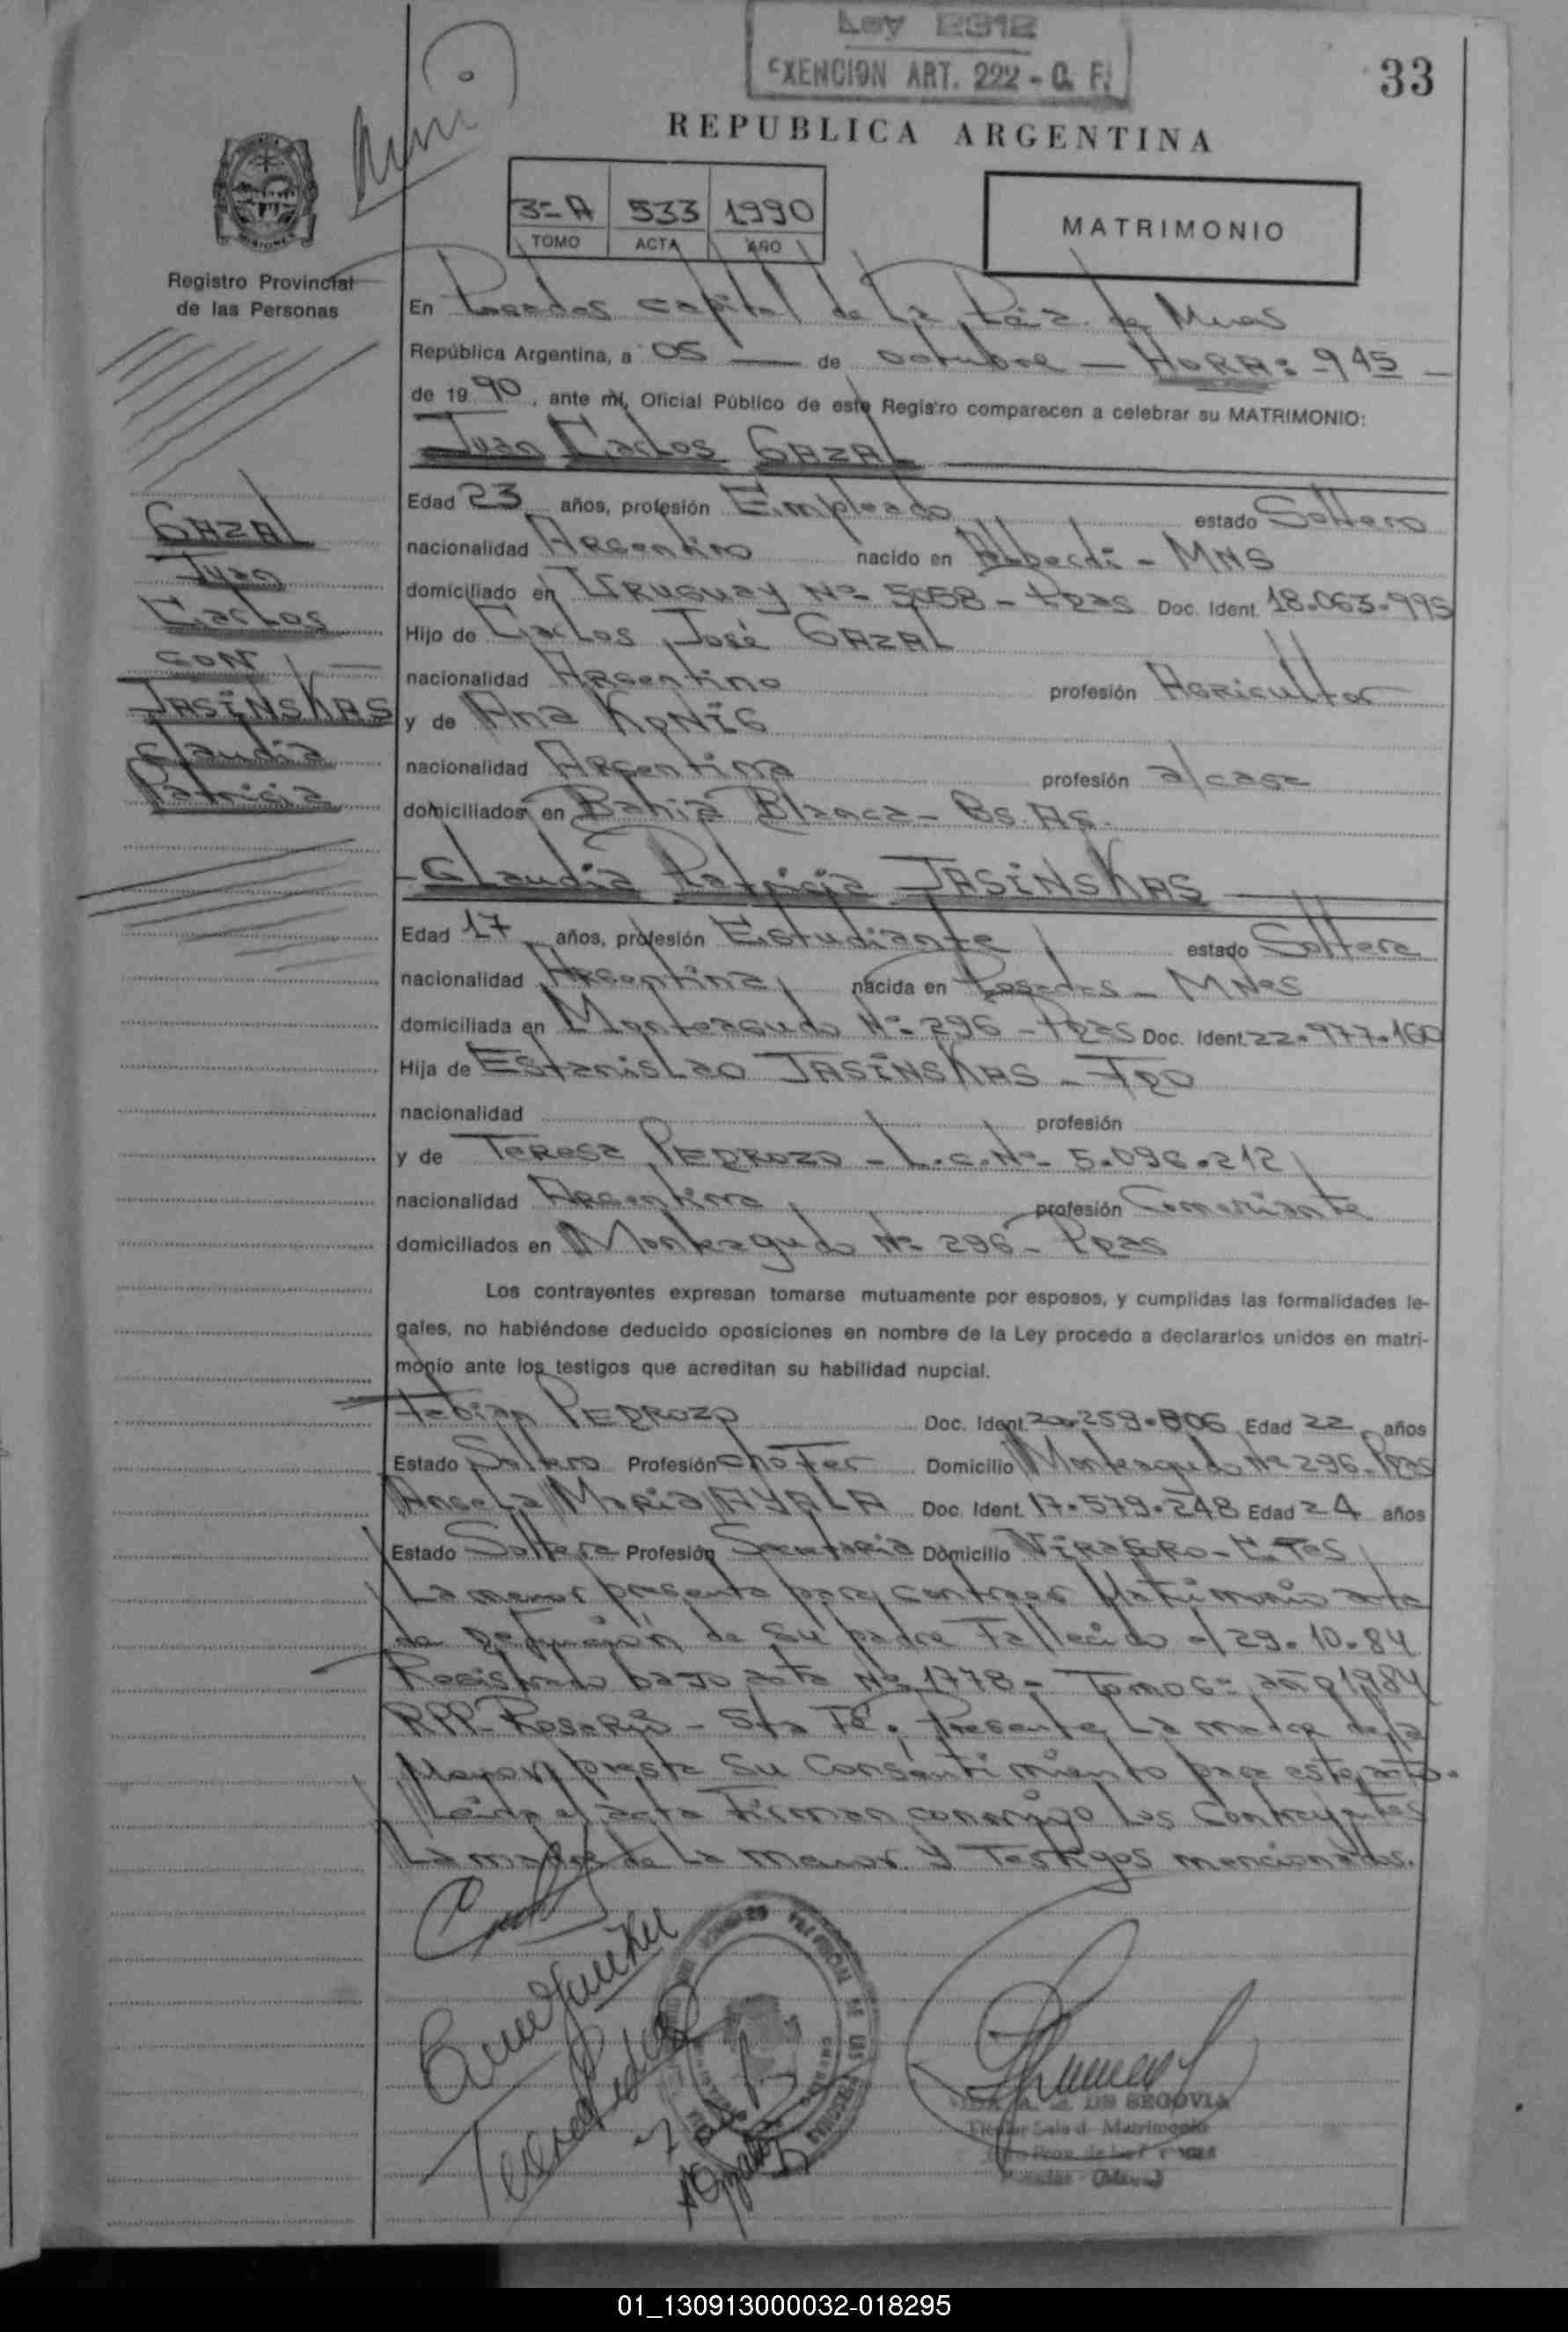 Ley 2312
EXENCION ART. 222 - C. F.
33
REPUBLICA ARGENTINA
3º A 533 1990
TOMO ACTA AÑO
MATRIMONIO
MISIONES
Registro Provincial
de las Personas
En Posadas capital de la Pcia. de Mnes
República Argentina, a 05 — de octubre — HORA: 9 45 —
de 1990, ante mí, Oficial Público de este Registro comparecen a celebrar su MATRIMONIO:
Juan Carlos GAZAL
Edad 23 años, profesión Empleado estado Soltero
nacionalidad Argentino nacido en Alberdi - MNS
domiciliado en URuguay Nº 5058 - Pdas Doc. Ident. 18.063.995
Hijo de Carlos José GAZAL
nacionalidad Argentino profesión Agricultor
y de Ana KONIG
nacionalidad Argentina profesión a/casa
domiciliados en Bahia Blanca - Bs. As.
GAZAL
Juan
Carlos
CON
JASINSKAS
Claudia
Patricia
- Claudia Patricia JASINSKAS
Edad 17 años, profesión Estudiante estado Soltera
nacionalidad Argentina nacida en Posadas - MNes
domiciliada en Monteagudo Nº 296 - Pdas Doc. Ident. 22.977.160
Hija de Estanislao JASINSKAS - FDO
nacionalidad profesión
y de Teresa PEDROZO - L.C.Nº 5.096.212
nacionalidad Argentina profesión Comerciante
domiciliados en Monteagudo Nº 296 - Pdas
Los contrayentes expresan tomarse mutuamente por esposos, y cumplidas las formalidades le-
gales, no habiéndose deducido oposiciones en nombre de la Ley procedo a declararlos unidos en matri-
monio ante los testigos que acreditan su habilidad nupcial.
Fabian PEDROZO Doc. Ident. 20.259.806 Edad 22 años
Estado Soltero Profesión choFer Domicilio Monteagudo Nº 296 - Pdas
Angela Maria AYALA Doc. Ident. 17.579.248 Edad 24 años
Estado Soltera Profesión Secretaria Domicilio VIRASORO - C.Tes
La menor presenta para contraer Matrimonio acta
de Defunción de su padre Fallecido el 29.10.84
Registrado bajo acta Nº 1778 - Tomo 6º año 1984
RPP - Rosario - Sta Fé. Presente La madre de la
Menor presta su consentimiento para este acto.
Leida el acta Firman conmigo Los Contrayentes
La madre de La menor y Testigos mencionados.
Teresa Pedrozo
DE SEGOVIA
Titular Sala d Matrimonio
Posadas - (Mnes.)
01_130913000032-018295